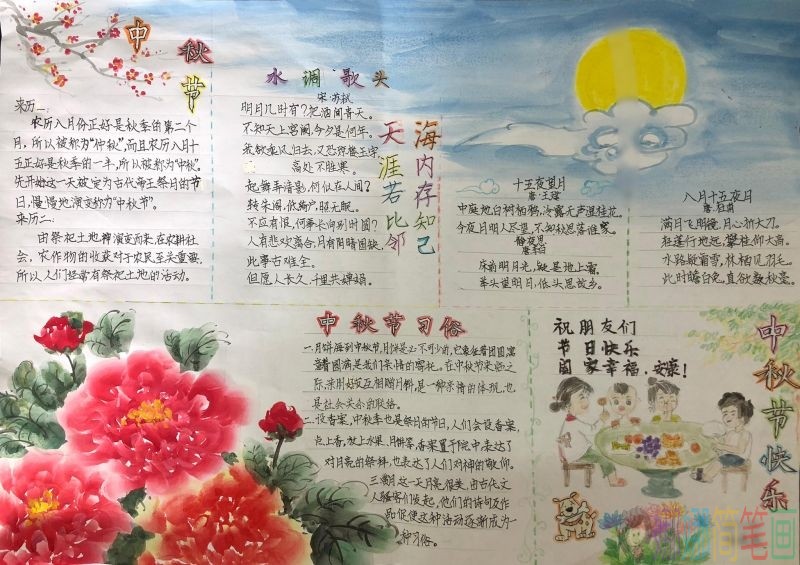 中秋节
来历一:
农历八月份正好是秋季的第二个
月,所以被称为“仲秋”,而且农历八月十
五正好是秋季的一半,所以被称为“中秋”。
先开始这一天被定为古代帝王祭月的节
日,慢慢地演变称为“中秋节”。
来历二:
由祭祀土地神演变而来,在农耕社
会,农作物的收获对于农民至关重要,
所以人们经常有祭祀土地的活动。
水调歌头
宋·苏轼
明月几时有?把酒问青天。
不知天上宫阙,今夕是何年。
我欲乘风归去,又恐琼楼玉宇,
高处不胜寒。
起舞弄清影,何似在人间?
转朱阁,低绮户,照无眠。
不应有恨,何事长向别时圆?
人有悲欢离合,月有阴晴圆缺,
此事古难全。
但愿人长久,千里共婵娟。
海内存知己
天涯若比邻
十五夜望月
唐·王建
中庭地白树栖鸦,冷露无声湿桂花。
今夜月明人尽望,不知秋思落谁家。
静夜思
唐·李白
床前明月光,疑是地上霜。
举头望明月,低头思故乡。
八月十五夜月
唐·杜甫
满月飞明镜,归心折大刀。
转蓬行地远,攀桂仰天高。
水路疑霜雪,林栖见羽毛。
此时瞻白兔,直欲数秋毫。
中秋节习俗
一、月饼
二、设香案,中秋季也是祭月的节日,人们会设香案,
点上香,放上水果、月饼等,
对月亮的祭拜,也表达了人们对神的敬仰。
三、
人骚客们发起,他们的诗句及作
品促使这种活动逐渐成为一
种习俗。
祝朋友们
节日快乐
阖家幸福,安康!
中秋节快乐
简笔画